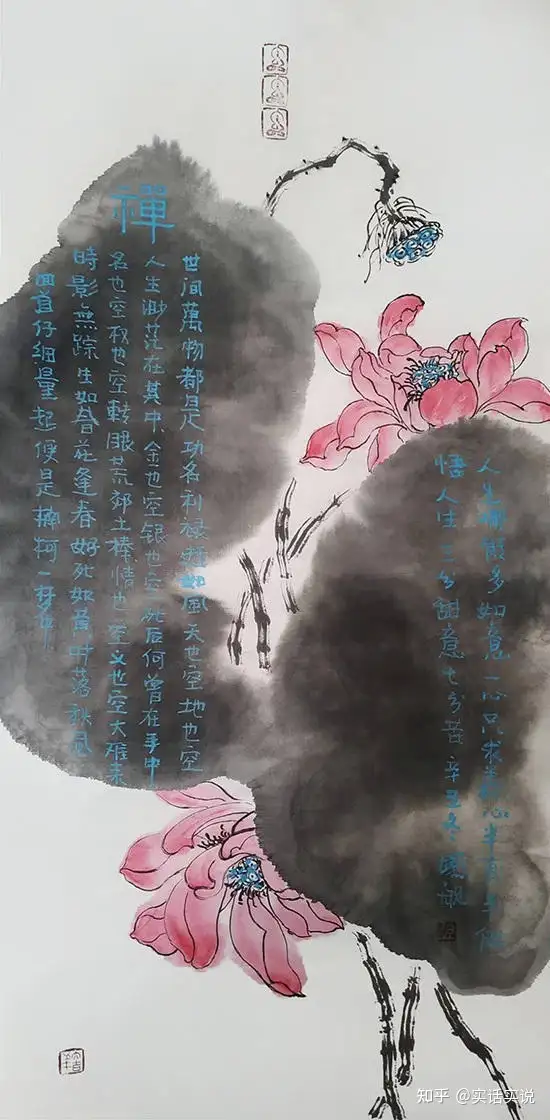 禪
世间萬物都是功名利禄如風天也空地也空
人生渺茫在其中金也空银也空死后何曾在手中
名也空也空轉眼荒郊土棒情也空义也空大难来
時影無踪生如春花逢春好死如黄叶落秋風
回首仔细量起便是柯一梦中
人生哪能多如意一心只求心半有半
悟人生三分甜意七分苦辛丑冬
知乎 @实话实说